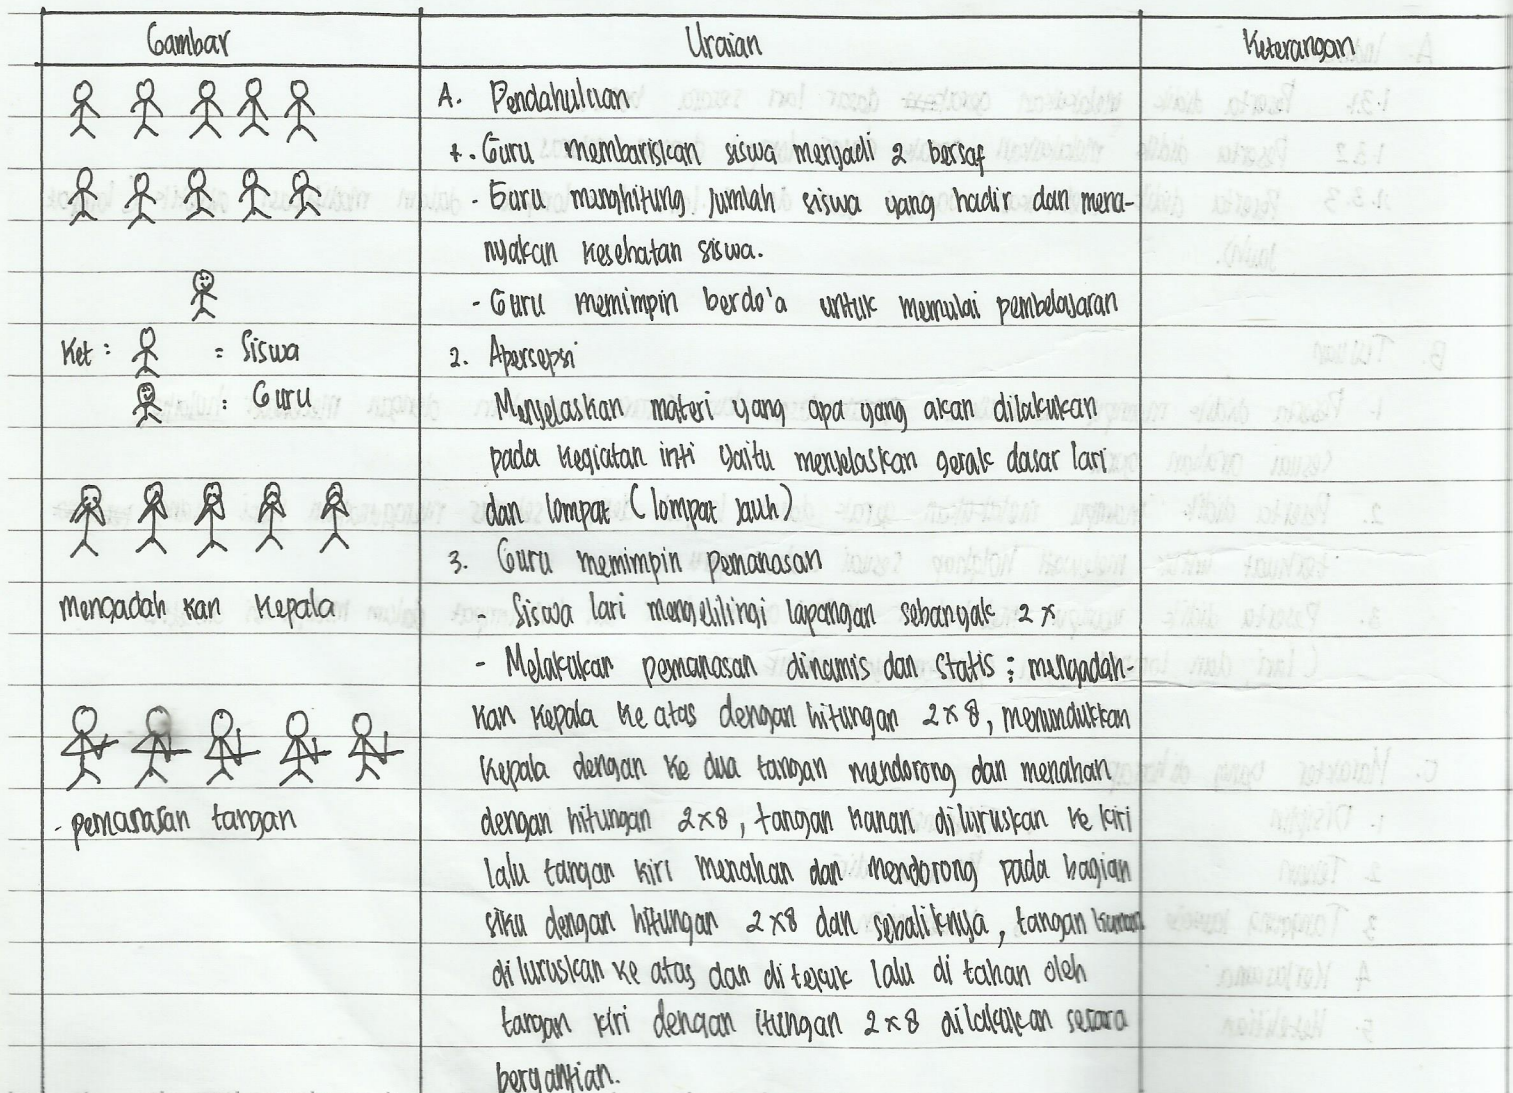 Gambar
Uraian
Keterangan
A. Pendahuluan
1. Guru membariskan siswa menjadi 2 bersaf
- Guru menghitung jumlah siswa yang hadir dan mena-
nyakan kesehatan siswa.
- Guru memimpin berdo'a untuk memulai pembelajaran
Ket : = Siswa
: Guru
2. Apersepsi
Menjelaskan materi yang apa yang akan dilakukan
pada kegiatan inti yaitu menjelaskan gerak dasar lari
dan lompat (lompat jauh)
3. Guru memimpin pemanasan
- Siswa lari mengelilingi lapangan sebanyak 2 x
- Melakukan pemanasan dinamis dan statis : mengadah-
kan kepala ke atas dengan hitungan 2x8, menundukkan
kepala dengan ke dua tangan mendorong dan menahan
dengan hitungan 2x8, tangan kanan diluruskan ke kiri
lalu tangan kiri menahan dan mendorong pada bagian
siku dengan hitungan 2x8 dan sebaliknya, tangan kanan
diluruskan ke atas dan di tekuk lalu di tahan oleh
tangan kiri dengan itungan 2x8 dilakukan secara
bergantian.
mengadah kan kepala
- pemanasan tangan